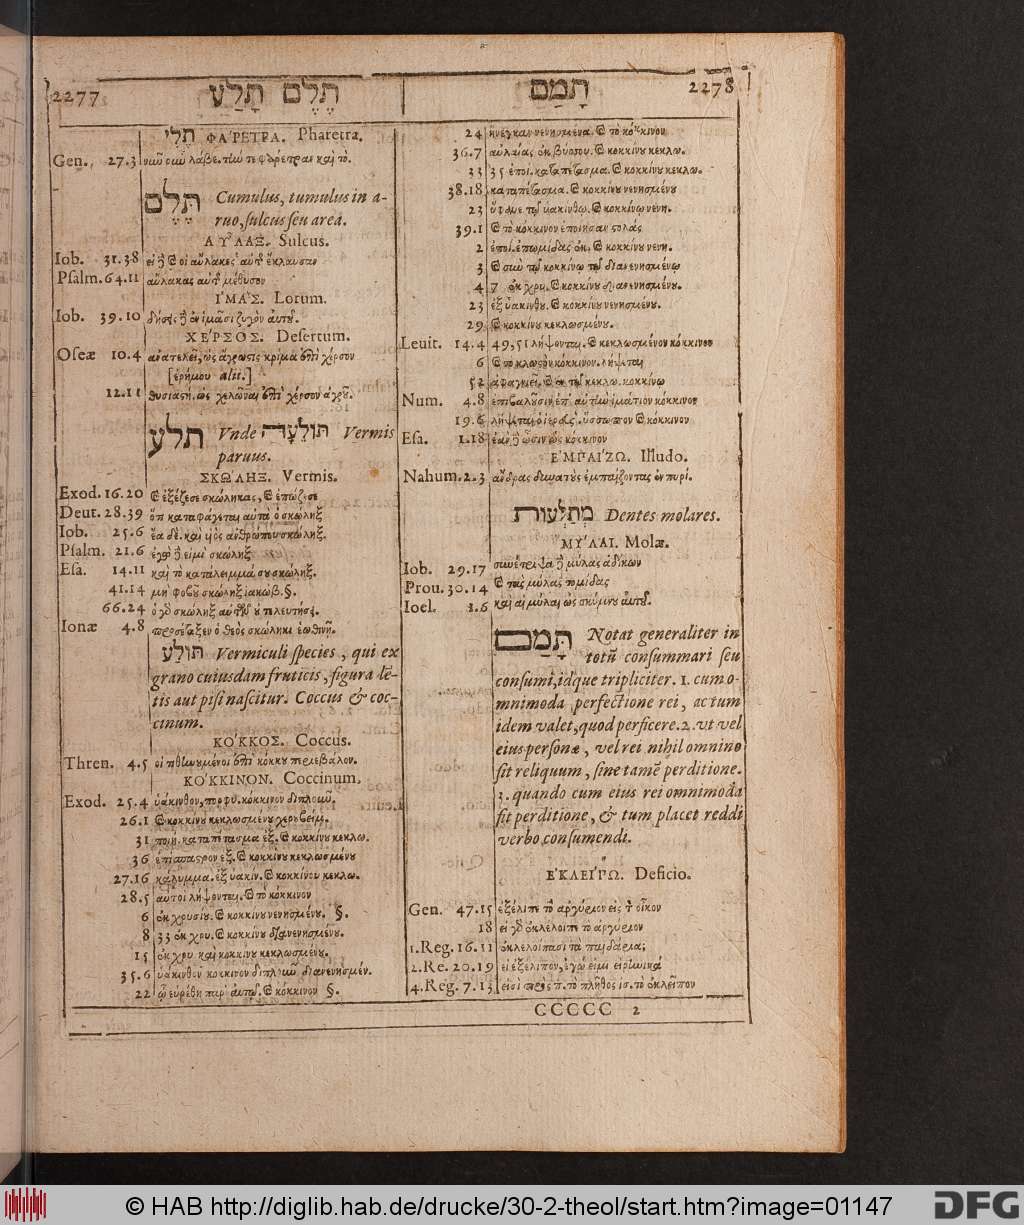 2277 תֶּלֶם תָּלַע
תָּמַם 2278
תְּלִי ΦΑΡΕΤΡΑ. Pharetra.
Gen. 27.3
תֶּלֶם Cumulus, tumulus in a-
ruo, sulcus seu area.
ΑΥ͂ΛΑΞ. Sulcus.
Iob. 31.38
Psalm. 64.11 αὔλακας αὐτῆς μέθυσον
ἹΜΑΣ. Lorum.
Iob. 39.10
ΧΕΡΣΟΣ. Desertum.
Oseæ 10.4 ἀνατελεῖ, ὡς ἄγρωστις κρίμα ἐπὶ χέρσον
[ἐρήμου alit.]
12.11
תלע Vnde תּוֹלֵעָה Vermis
paruus.
ΣΚΩΛΗΞ. Vermis.
Exod. 16.20 ἐξέζεσε σκώληκας, ἐπώζεσε
Deut. 28.39 ὅτι καταφάγεται αὐτὰ ὁ σκώληξ
Iob. 25.6 ἔα δὲ. καὶ υἱὸς ἀνθρώπου σκώληξ.
Psalm. 21.6 ἐγὼ δέ εἰμι σκώληξ
Esa. 14.11 καὶ τὸ κατάλειμμά σου σκώληξ.
41.14 μὴ φοβοῦ σκώληξ ἰακώβ. §.
66.24 ὁ γὰρ σκώληξ αὐτῶν οὐ τελευτήσει.
Ionæ 4.8 προσέταξεν ὁ θεὸς σκώληκι ἑωθινῇ.
תּוֹלָע Vermiculi species, qui ex
grano cuiusdam fruticis, figura lē-
tis aut pisi nascitur. Coccus & coc-
cinum.
ΚΟΚΚΟΣ. Coccus.
Thren. 4.5 οἱ τιθηνούμενοι ἐπὶ κόκκου περιεβάλον.
ΚΟΚΚΙΝΟΝ. Coccinum.
Exod. 25.4 ὑάκινθον, πορφύ. κόκκινον διπλοῦν.
26.1 κοκκίνου κεκλωσμένου χερουβείμ.
31 ποιή. καταπέτασμα ἐξ. κοκκίνου κεκλω.
36 ἐπίσπαστρον ἐξ. κοκκίνου κεκλωσμένου
27.16 κάλυμμα. ἐξ ὑακίν. κοκκίνου κεκλω.
28.5 αὐτοὶ λήψονται. τὸ κόκκινον
6 ἐκ χρυσίου. κοκκίνου νενησμένου. §.
8 33 ἐκ χρυ. κοκκίνου διανενησμένου.
15 ἐκ χρυ. καὶ κοκκίνου κεκλωσμένου.
35.6 ὑάκινθον κόκκινον διπλοῦν διανενησμέν.
22 ᾧ εὑρέθη παρ' αὐτῷ. κόκκινον §.
24 ἤνεγκαν νενησμένα. τὸ κόκκινον
36.7 αὐλαίας ἐκ βύσσου. κοκκίνου κεκλω.
33 35 ἐποί. καταπέτασμα. κοκκίνου κεκλω.
38.18 καταπέτασμα. κοκκίνου νενησμένου
23 ὕφανε τῷ ὑακίνθῳ. κοκκίνῳ νενη.
39.1 τὸ κόκκινον ἐποίησαν στολὰς
2 ἐποί. ἐπωμίδας ἐκ. κοκκίνου νενη.
3 σὺν τῷ κοκκίνῳ τῷ διανενησμένῳ
4 7 ἐκ χρυ. κοκκίνου διανενησμένου.
23 ἐξ ὑακίνθου. κοκκίνου νενησμένου.
29 κοκκίνου κεκλωσμένου.
Leuit. 14.4 49, 51 λήψονται. κεκλωσμένον κόκκινον
6 τὸ κλωστὸν κόκκινον. λήψεται
52 ἀφαγνιεῖ. ἐν τῷ κεκλω. κοκκίνῳ
Num. 4.8 ἐπιβαλοῦσιν ἐπ' αὐτὴν ἱμάτιον κόκκινον
19.6 λήψεται ὁ ἱερεὺς. ὕσσωπον κόκκινον
Esa. 1.18 ἐὰν ὦσιν ὡς κόκκινον
ΕΜΠΑΙΖΩ. Illudo.
Nahum. 2.3 ἄνδρας δυνατοὺς ἐμπαίζοντας ἐν πυρί.
מְתַלְּעוֹת Dentes molares.
ΜΥΛΑΙ. Molæ.
Iob. 29.17 συνέτριψα δὲ μύλας ἀδίκων
Prou. 30.14 τὰς μύλας τομίδας
Ioel. 1.6 καὶ αἱ μύλαι ὡς σκύμνου αὐτοῦ.
תָּמַם Notat generaliter in
totū consummari seu
consumi, idque tripliciter. 1. cum o-
mnimoda perfectione rei, ac tum
idem valet, quod perficere. 2. vt vel
eius personæ, vel rei nihil omnino
sit reliquum, sine tamē perditione.
3. quando cum eius rei omnimoda
sit perditione, & tum placet reddi
verbo consumendi.
ΕΚΛΕΙΠΩ. Deficio.
Gen. 47.15 ἐξέλιπε τὸ ἀργύριον εἰς τ οἶκον
18 εἰ γὰρ ἐκλέλοιπε τὸ ἀργύριον
1. Reg. 16.11 ἐκλελοίπασι τὰ παιδάρια;
2. Re. 20.19 εἰ ἐξέλιπον, ἐγώ εἰμι εἰρηνικά
4. Reg. 7.13 εἰσὶ πρὸς π. τὸ πλῆθος ἰσ. τὸ ἐκλεῖπον
CCCCC 2
© HAB http://diglib.hab.de/drucke/30-2-theol/start.htm?image=01147
DFG